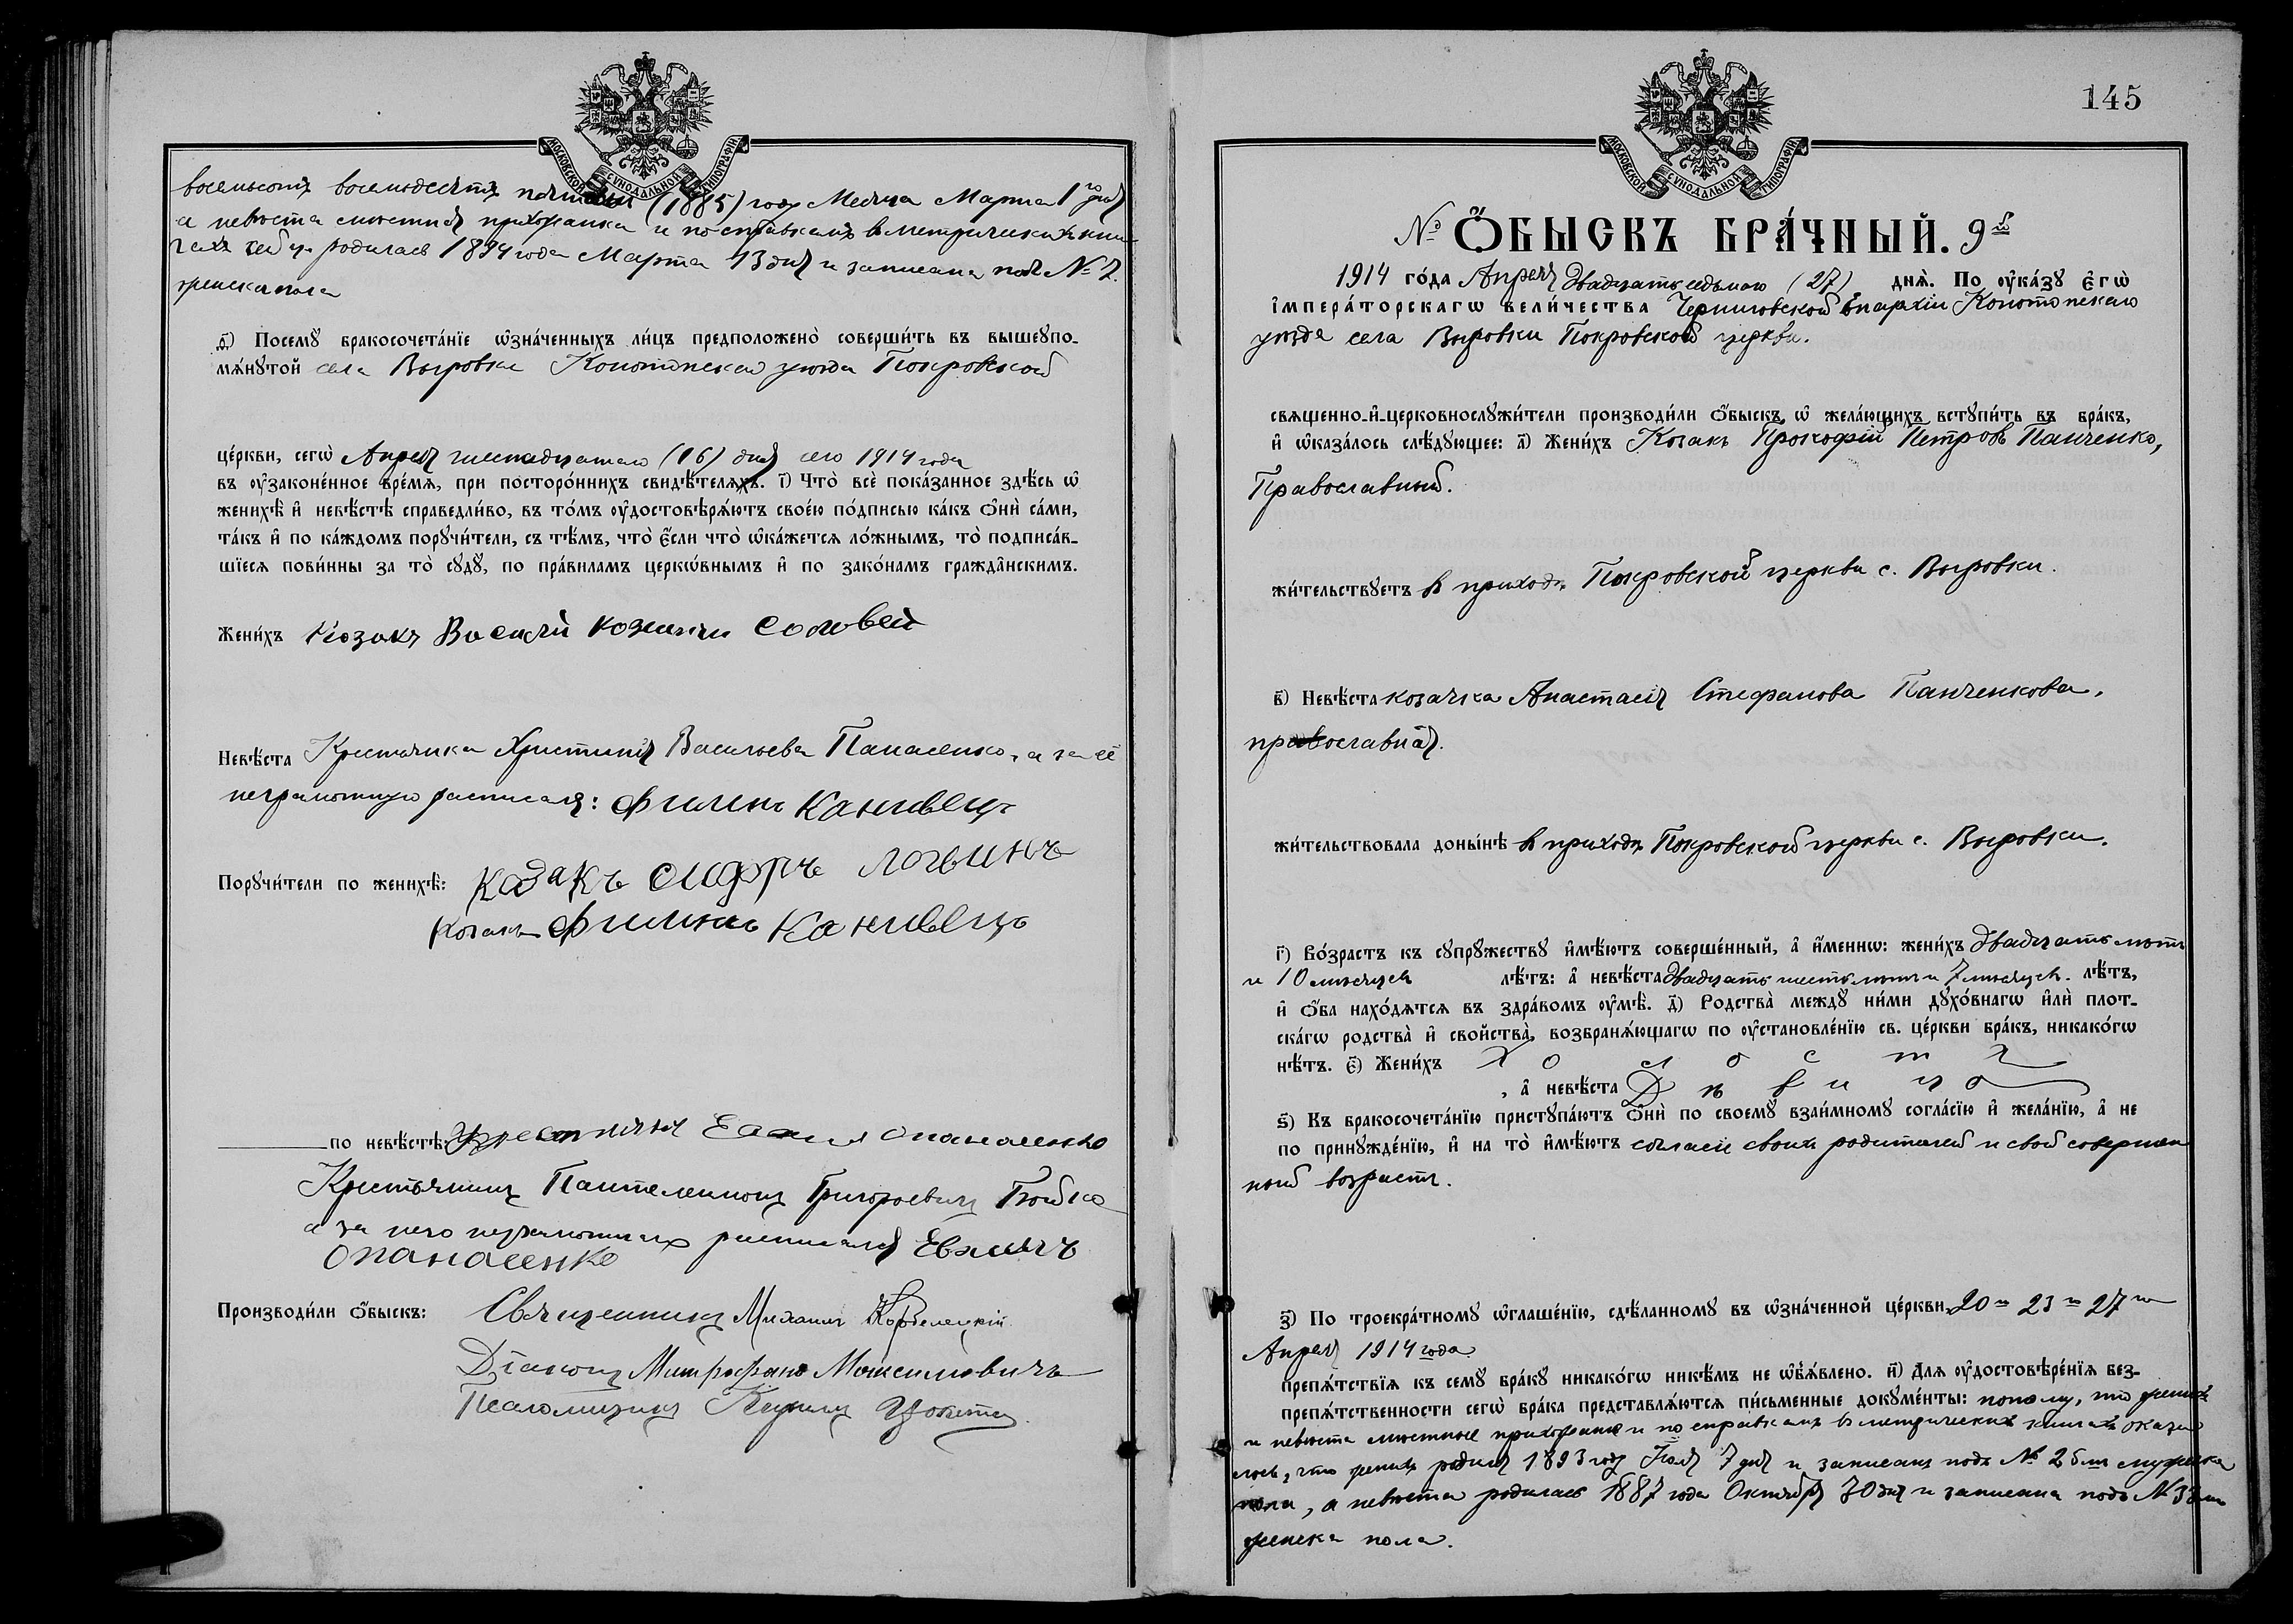 МОСКОВСКОЙ СѴНОДАЛЬНОЙ ТИПОГРАФІИ
восемьсотъ восемьдесятъ пятомъ (1885) году Месяца Марта 1го дня
а невѣста мѣстная прихожанка и по справкамъ въ метрическихъ кни
гахъ родилась 1894 года Марта 13 дня и записана подъ № 7.
женска пола
Посемꙋ бракосочета́нїе ѡ҆зна́ченныхъ ли́цъ предположено̀ соверши́ть въ вышеупо-
мѧ́нꙋтой села Выровки Конотопскаго уѣзда Покровской
це́ркви, сегѡ̀ Апреля шестнадцатаго (16) дня сего 1914 года
въ оу҆законе́нное вре́мѧ, при посторо́ннихъ свидѣ́телѧхъ. і҃) Что̀ всѐ пока́занное здѣ́сь ѡ҆
женихѣ̀ и҆ невѣ́стѣ справедли́во, въ то́мъ оу҆достовѣрѧ́ютъ свое́ю по́дписью ка́къ ѻ҆нѝ са́ми,
та́къ и҆ по ка́ждомъ порꙋчи́тели, съ тѣ́мъ, что̀ є҆́сли что̀ ѡ҆ка́жется ло́жнымъ, то̀ подписа́в-
шїеся пови́нны за то̀ сꙋдꙋ̀, по пра́виламъ церкѡ́внымъ и҆ по зако́намъ гражда̂нскимъ.
Жени́хъ Козакъ Василий Козмичъ Соловей
Невѣ́ста Крестьянка Христинія Васильева Панасенко, а за её
неграмотную расписался: Филипъ Канивецъ
Порꙋчи́тели по женихѣ̀: Казакъ Логвинъ
Козакъ Филипъ Канивецъ
по невѣ́стѣ: опанасенко
Крестьянинъ Пантелеимонъ Григорьевичъ
а за него неграмотнаго расписался
опанасенко
Производи́ли ѻ҆́быскъ: Священникъ Михаилъ
Діаконъ Митрофанъ Максимовичъ
Псаломщикъ
145
МОСКОВСКОЙ СѴНОДАЛЬНОЙ ТИПОГРАФІИ
№ Ѻ҆́БЫСКЪ БРА́ЧНЫЙ. 9й
1914 го́да Апреля двадцать седьмаго (27) днѧ̀. По оу҆ка́зꙋ є҆гѡ̀
і҆мпера́торскагѡ вели́чества Черниговской Епархіи Конотопскаго
уѣзда села Выровки Покровской церкви.
свѧщенно-и҆-церковнослꙋжи́тели производи́ли ѻ҆́быскъ ѡ҆ жела́ющихъ встꙋпи́ть въ бра́къ,
и҆ ѡ҆каза́лось слѣ́дꙋющее: а҃) Жени́хъ Козакъ Прокофій Петровъ Панченко,
Православный.
жи́тельствꙋетъ въ приходѣ Покровской церкви с. Выровки.
в҃) Невѣ́ста козачка Анастасія Стефанова Панченкова,
православная.
жи́тельствовала доны́нѣ въ приходѣ Покровской церкви с. Выровки.
г҃) Во́зрастъ къ сꙋпрꙋ́жествꙋ и҆мѣ́ютъ соверше́нный, а҆ и҆́менно: жени́хъ двадцать лѣтъ
и 10 мѣсяцевъ лѣ́тъ: а҆ невѣ́ста двадцать шесть лѣтъ и 7 мѣсяцевъ. лѣ́тъ,
и҆ ѻ҆́ба нахо́дѧтсѧ въ здра́вомъ оу҆мѣ̀. д҃) Родства̀ междꙋ̀ ни́ми дꙋхо́внагѡ и҆лѝ плот-
ска́гѡ родства̀ и҆ свойства̀, возбранѧ́ющагѡ по оу҆становле́нїю св. це́ркви бра́къ, никако́гѡ
нѣ́тъ. є҃) Жени́хъ Холостъ
, а҆ невѣ́ста Дѣвица
ѕ҃) Къ бракосочета́нїю пристꙋпа́ютъ ѻ҆нѝ по своемꙋ̀ взаи́мномꙋ согла́сїю и҆ жела́нїю, а҆ не
по принꙋжде́нїю, и҆ на то̀ и҆мѣ́ютъ согласіе своихъ родителей и свой совершен
ный возрастъ.
з҃) По троекра́тномꙋ ѡ҆глаше́нїю, сдѣ́ланномꙋ въ ѡ҆зна́ченной це́ркви 20го 23го 27го
Апреля 1914 года.
препѧ́тствїѧ къ семꙋ̀ бра́кꙋ никако́гѡ никѣ́мъ не ѡ҆б̾ѧ́влено. и҃) Длѧ оу҆достовѣре́нїѧ без-
препѧ́тственности сегѡ̀ бра́ка представлѧ́ются пи́сьменные докꙋме́нты: потому, что женихъ
и невѣста мѣстные прихожане и по справкамъ въ метрическихъ книгахъ оказа
лось, что женихъ родился 1893 году Іюля 7 дня и записанъ подъ № 25мъ мужеска
пола, а невѣста родилась 1887 года Октября 30 дня и записана подъ №
женска пола.